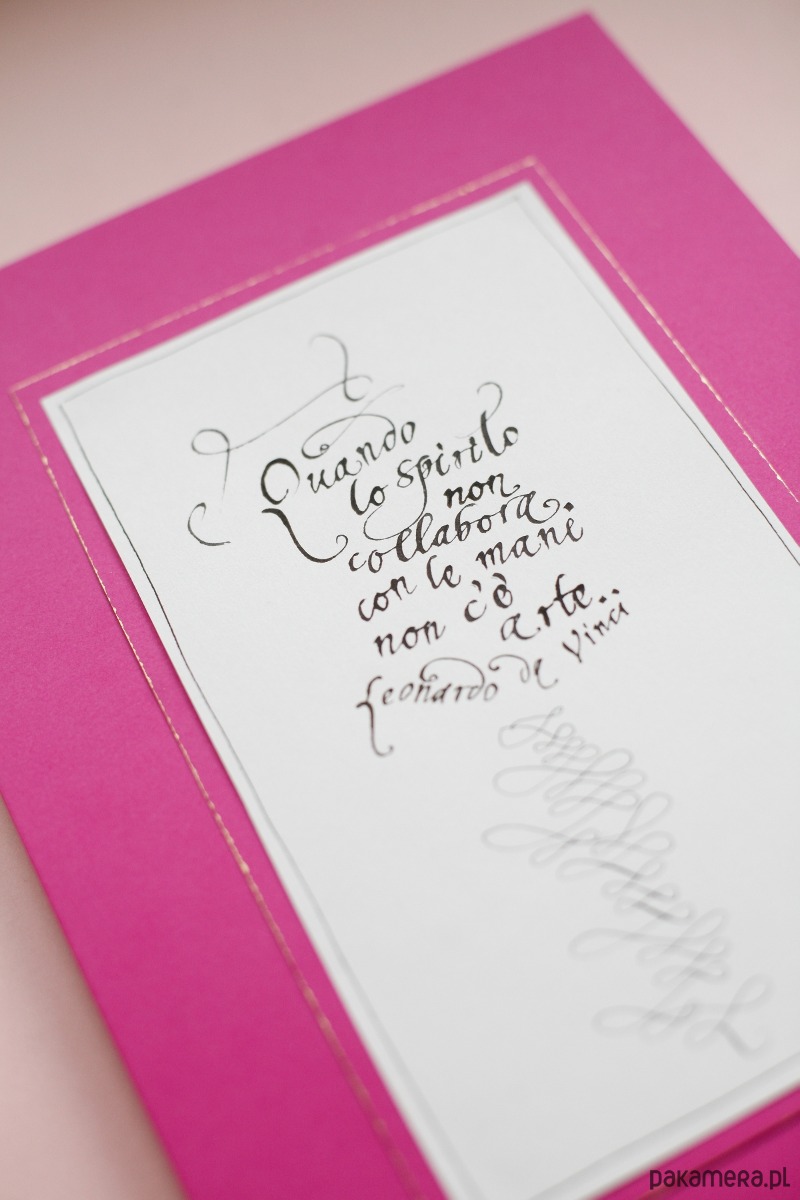 Quando
lo spirito
non
collabora
con le mani
non c'è
arte..
Leonardo da Vinci
pakamera.pl